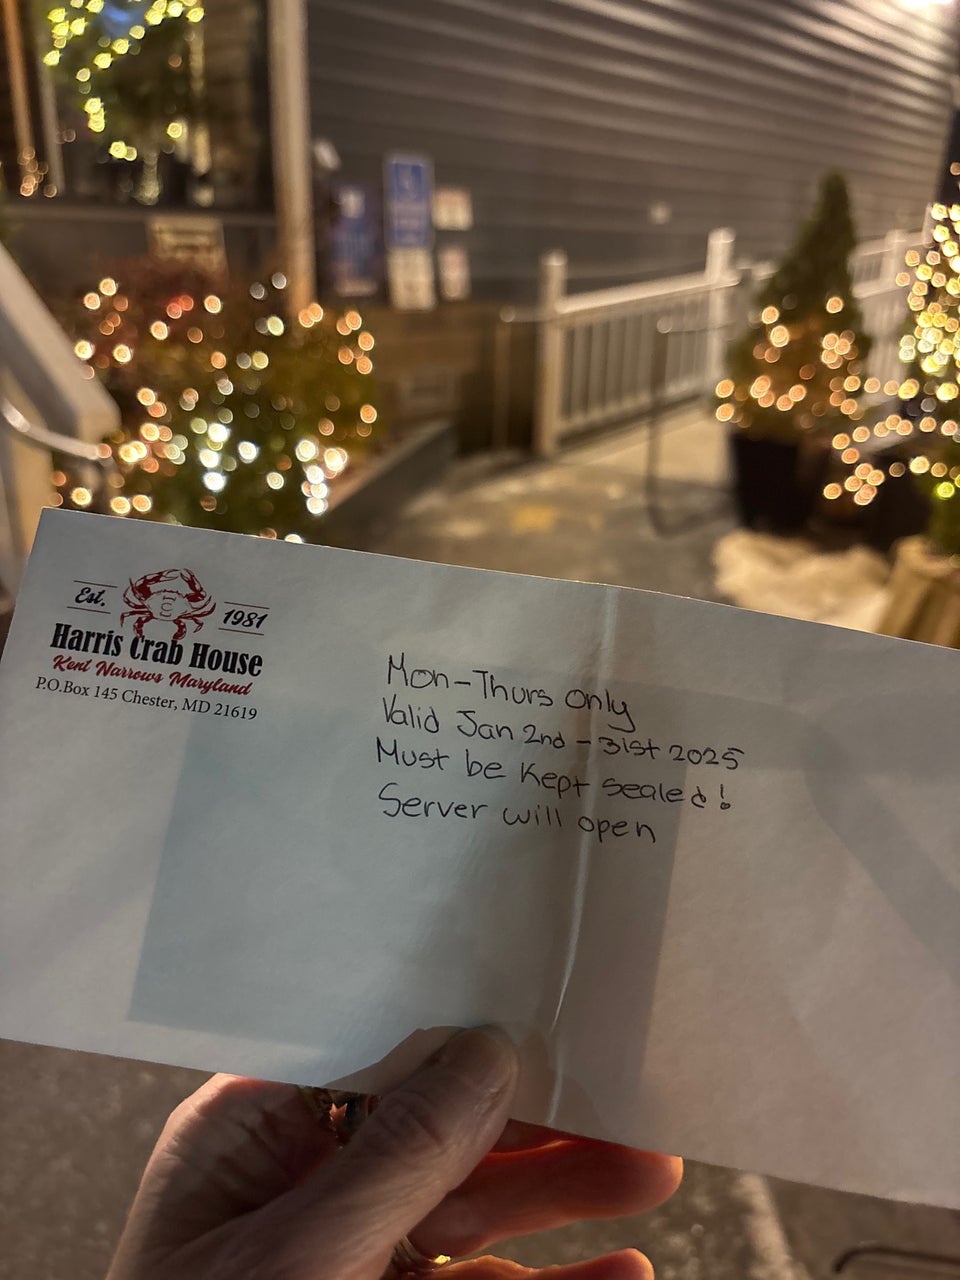 Est. 1981
Harris Crab House
Kent Narrows Maryland
P.O.Box 145 Chester, MD 21619
Mon-Thurs only
Valid Jan 2nd - 31st 2025
Must be kept sealed!
Server will open